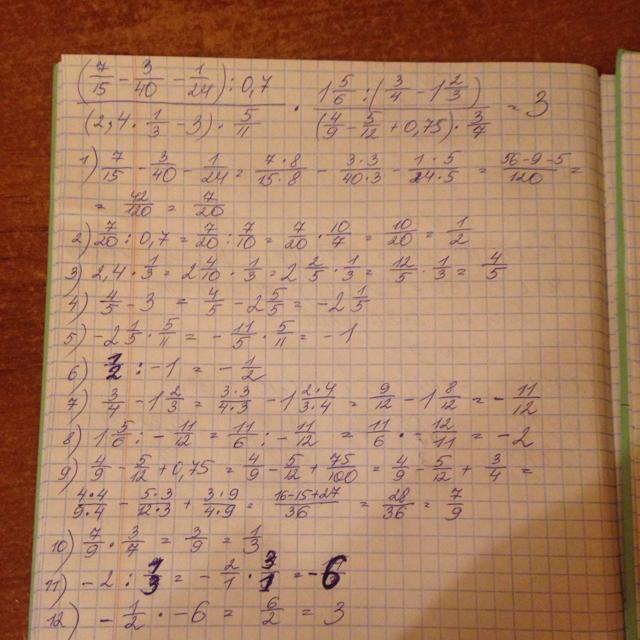 (7/15 - 3/40 - 1/24) : 0,7 / (2,4 · 1/3 - 3) · 5/11 · 1 5/6 : (3/4 - 1 2/3) / (4/9 - 5/12 + 0,75) · 3/7 = 3
1) 7/15 - 3/40 - 1/24 = 7·8/15·8 - 3·3/40·3 - 1·5/24·5 = 56-9-5/120 =
= 42/120 = 7/20
2) 7/20 : 0,7 = 7/20 : 7/10 = 7/20 · 10/7 = 10/20 = 1/2
3) 2,4 · 1/3 = 2 4/10 · 1/3 = 2 2/5 · 1/3 = 12/5 · 1/3 = 4/5
4) 4/5 - 3 = 4/5 - 2 5/5 = -2 1/5
5) -2 1/5 · 5/11 = - 11/5 · 5/11 = -1
6) 1/2 : -1 = - 1/2
7) 3/4 - 1 2/3 = 3·3/4·3 - 1 2·4/3·4 = 9/12 - 1 8/12 = - 11/12
8) 1 5/6 : - 11/12 = 11/6 : - 11/12 = 11/6 · - 12/11 = -2
9) 4/9 - 5/12 + 0,75 = 4/9 - 5/12 + 75/100 = 4/9 - 5/12 + 3/4 =
4·4/9·4 - 5·3/12·3 + 3·9/4·9 = 16-15+27/36 = 28/36 = 7/9
10) 7/9 · 3/7 = 3/9 = 1/3
11) -2 : 1/3 = - 2/1 · 3/1 = -6
12) - 1/2 · -6 = 6/2 = 3